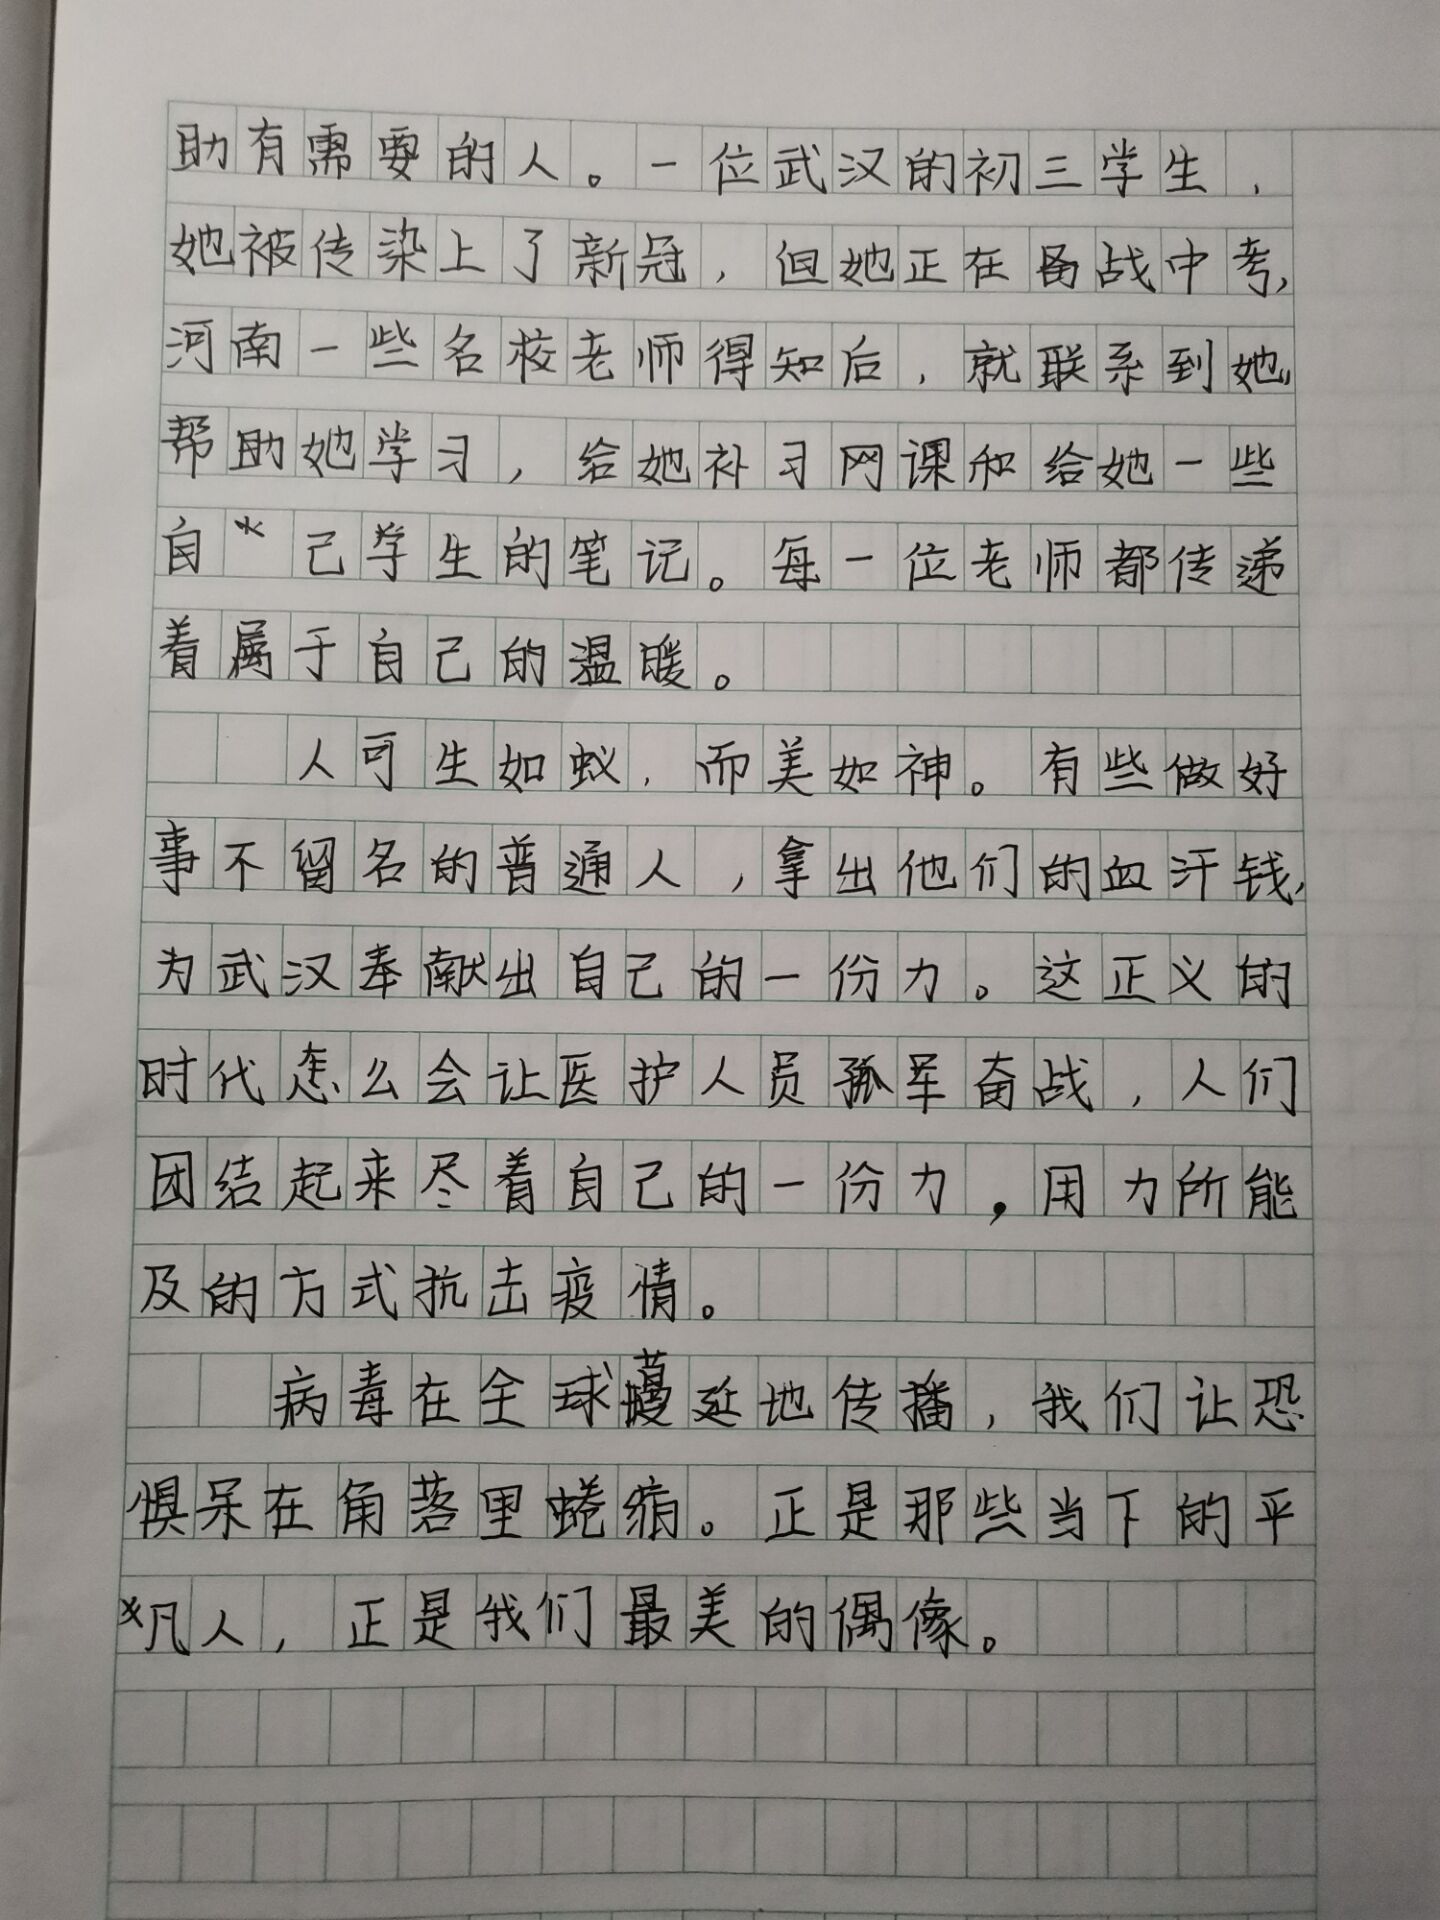 助有需要的人。一位武汉的初三学生，
她被传染上了新冠，但她正在备战中考，
河南一些名校老师得知后，就联系到她，
帮助她学习，给她补习网课和给她一些
自*己学生的笔记。每一位老师都传递
着属于自己的温暖。
人可生如蚁，而美如神。有些做好
事不留名的普通人，拿出他们的血汗钱，
为武汉奉献出自己的一份力。这正义的
时代怎么会让医护人员孤军奋战，人们
团结起来尽着自己的一份力，用力所能
及的方式抗击疫情。
病毒在全球蔓延地传播，我们让恐
惧呆在角落里蜷缩。正是那些当下的平
凡人，正是我们最美的偶像。